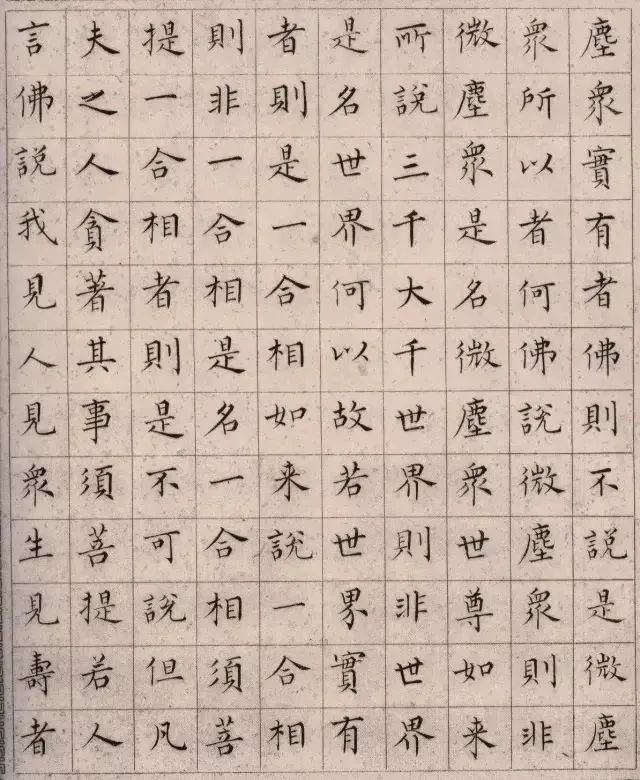 塵衆實有者佛則不說是微塵
衆所以者何佛說微塵衆則非
微塵衆是名微塵衆世尊如来
所說三千大千世界則非世界
是名世界何以故若世界實有
者則是一合相如来說一合相
則非一合相是名一合相須菩
提一合相者則是不可說但凡
夫之人貪著其事須菩提若人
言佛說我見人見衆生見壽者